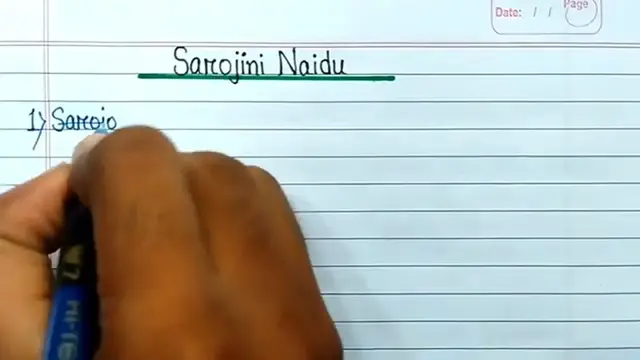 Page
Date: / /
Sarojini Naidu
1) Sarojo